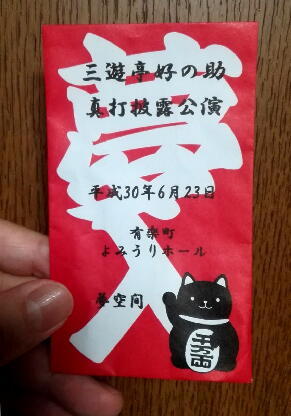 三遊亭好の助
真打披露公演
平成30年6月23日
有楽町
よみうりホール
夢空間
千万両